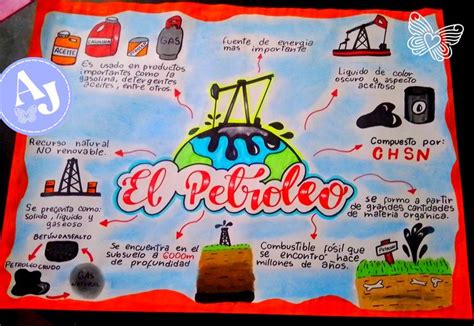 ACEITE
GASOLINA
GAS
Es usado en productos
importantes como la
gasolina, detergentes
aceites, entre otros.
Fuente de energía
mas importante
Liquido de color
oscuro y aspecto
aceitoso
AJ
Recurso natural
NO renovable.
Compuesto por:
CHSN
El Petroleo
Se presenta como:
solido, liquido y
gaseoso
Se formo a partir
de grandes cantidades
de materia orgánica.
BETÚN/ASFALTO
PETROLEO CRUDO
GAS
NATURAL
Se encuentra en el
subsuelo a 6000m
de profundidad
Combustible fósil que
se encontró hace
millones de años.